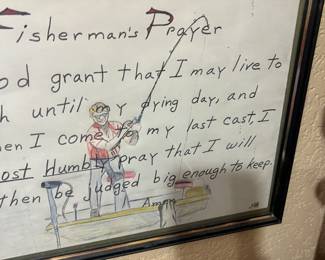 Fisherman's Prayer
od grant that I may live to
h until my dying day, and
hen I come to my last cast, I
ost Humbly pray that I will
then be judged big enough to keep.
Amen